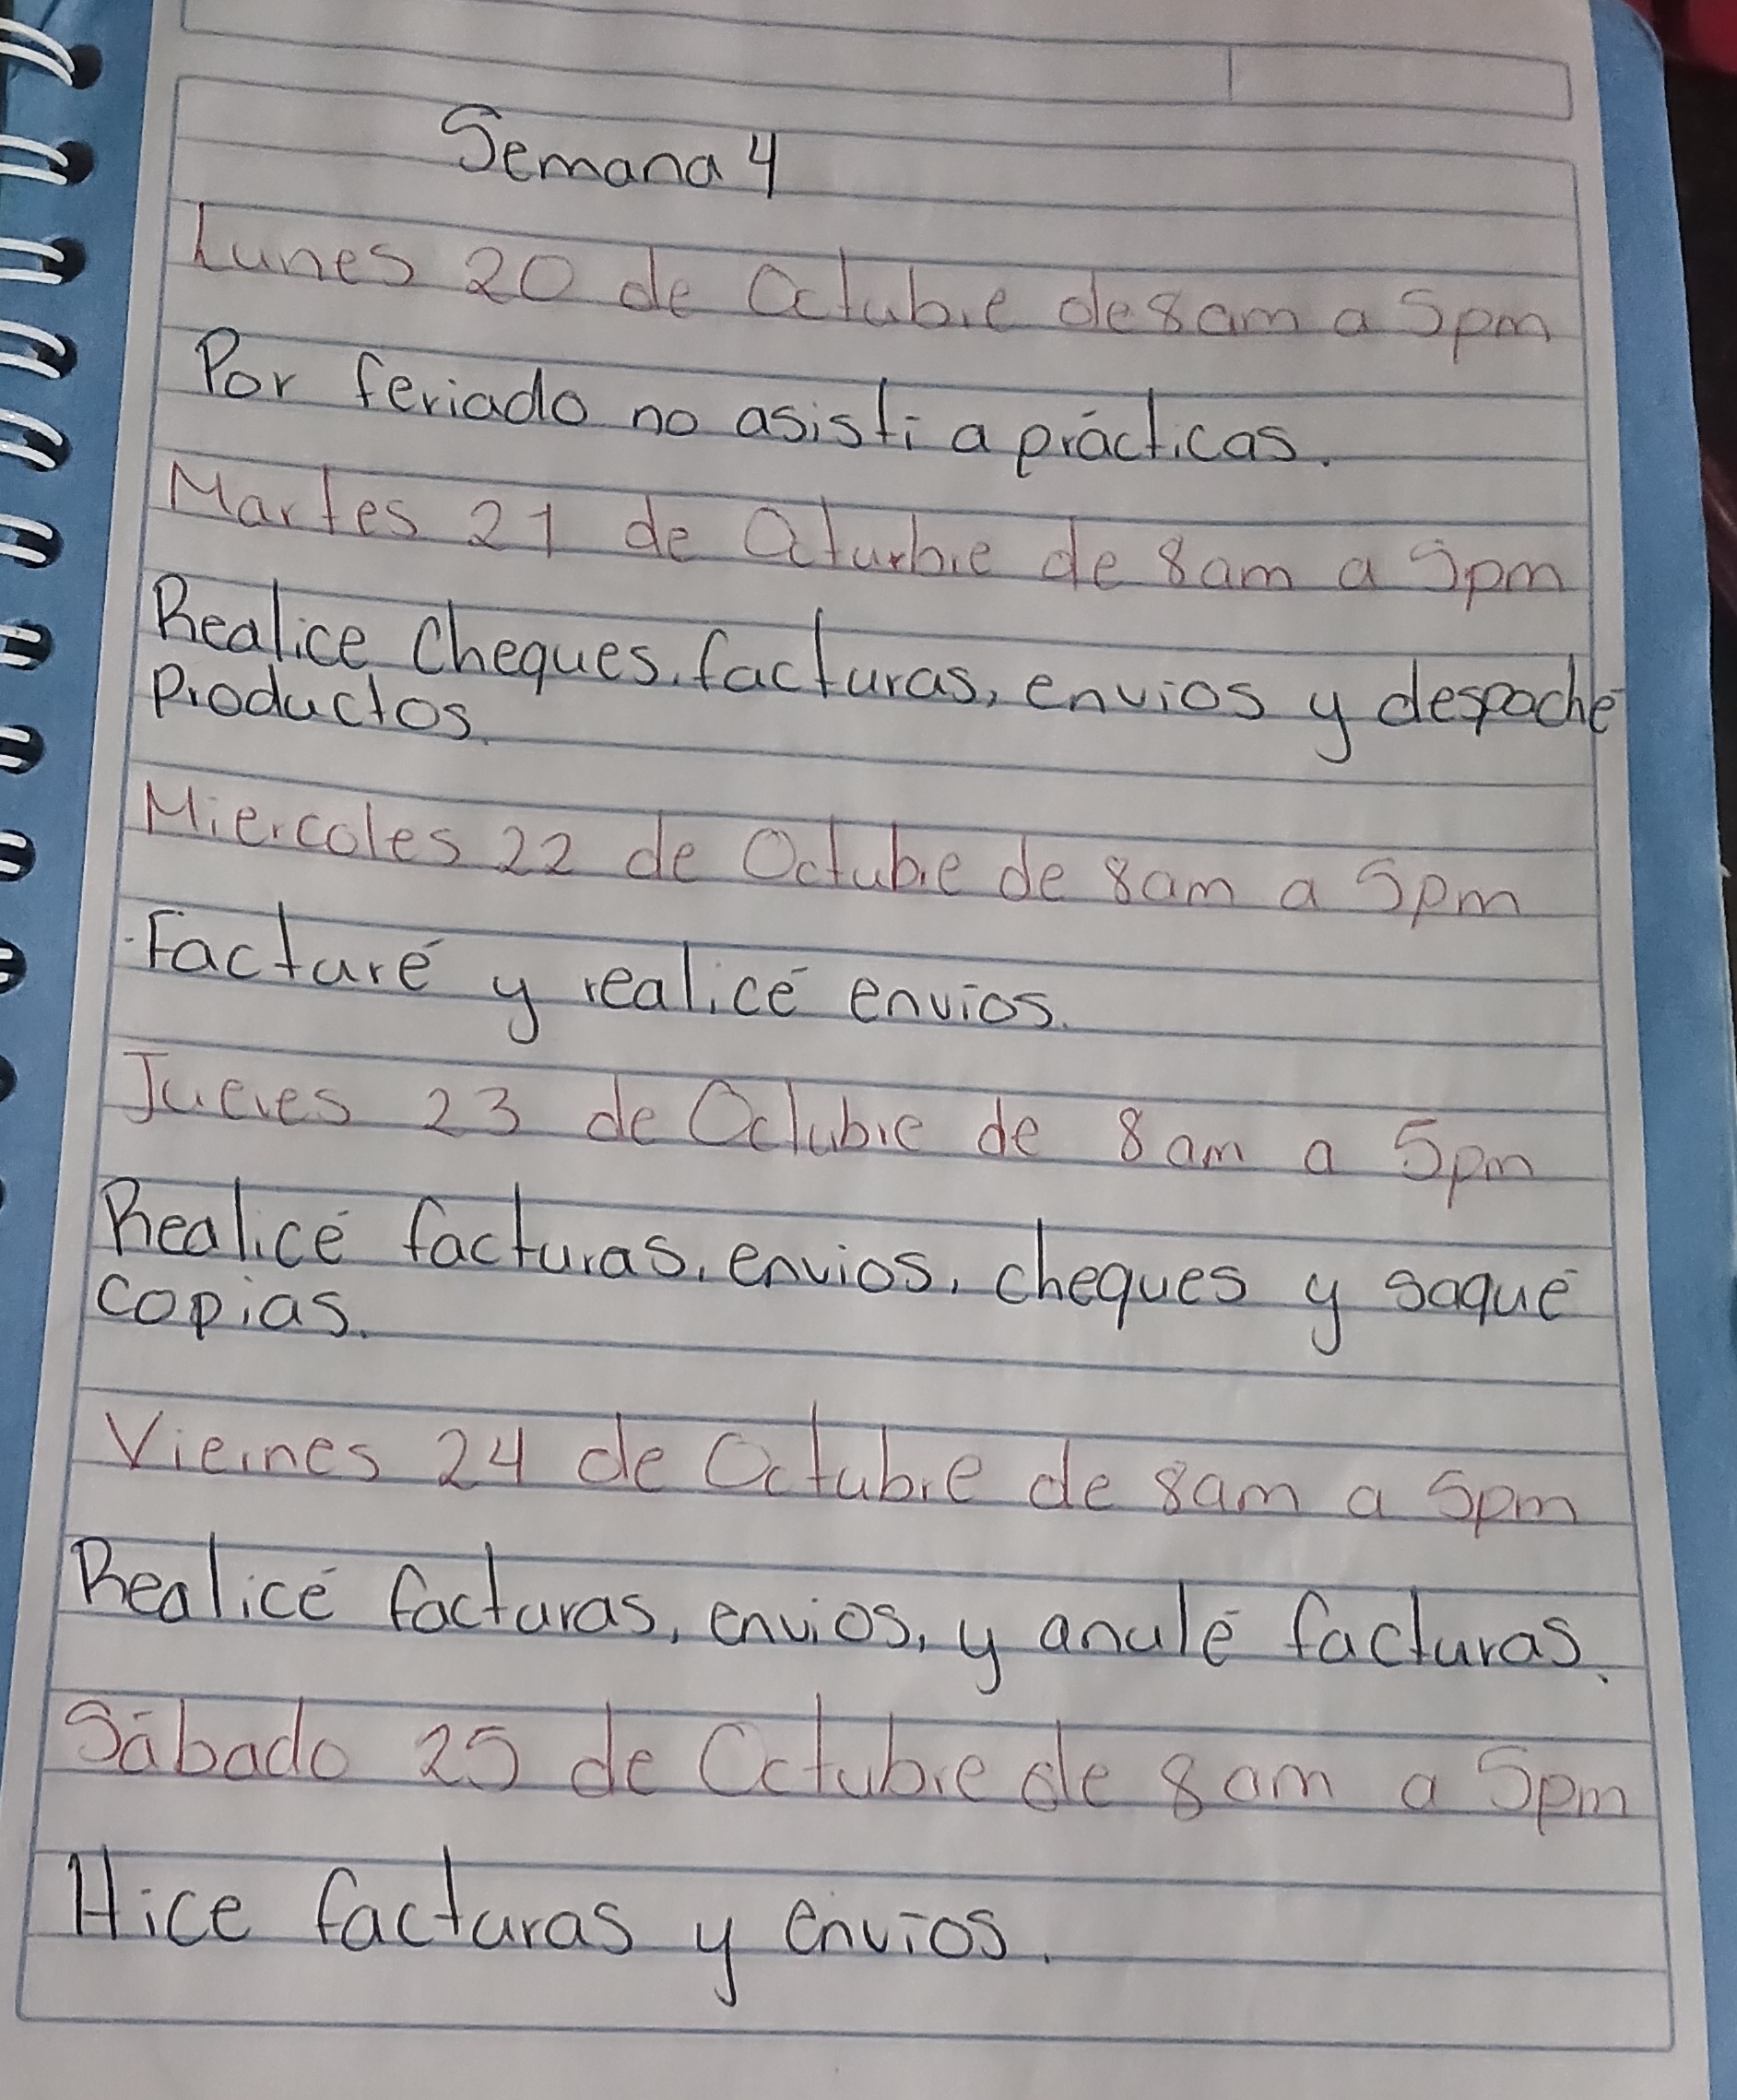 Semana 4
Lunes 20 de Octubre de 8am a 5pm
Por feriado no asisti a prácticas.
Martes 21 de Octurbre de 8am a 5pm
Realice Cheques, facturas, envios y despaché
Productos.
Miercoles 22 de Octubre de 8am a 5pm
Facturé y realicé envios.
Jueves 23 de Octubre de 8am a 5pm
Realicé facturas, envios, cheques y saqué
copias.
Viernes 24 de Octubre de 8am a 5pm
Realicé facturas, envios, y anulé facturas.
Sábado 25 de Octubre de 8am a 5pm
Hice facturas y envíos.